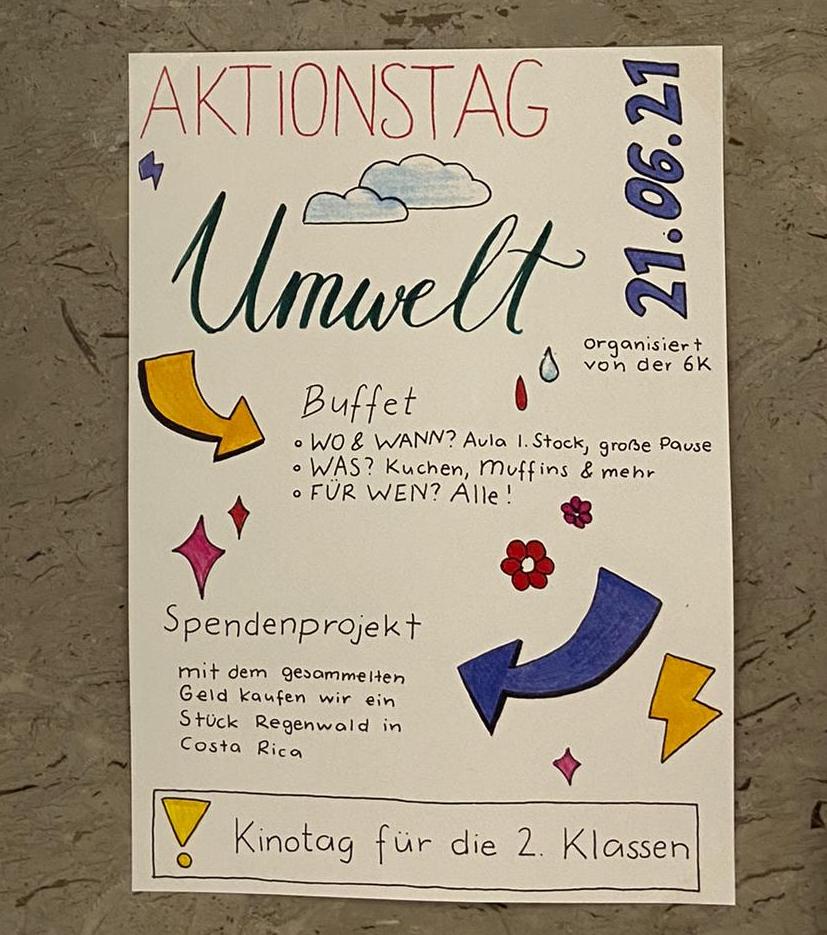 AKTIONSTAG
21.06.21
Umwelt
organisiert
von der 6K
Buffet
• WO & WANN? Aula 1. Stock, große Pause
• WAS? Kuchen, Muffins & mehr
• FÜR WEN? Alle!
Spendenprojekt
mit dem gesammelten
Geld kaufen wir ein
Stück Regenwald in
Costa Rica
! Kinotag für die 2. Klassen